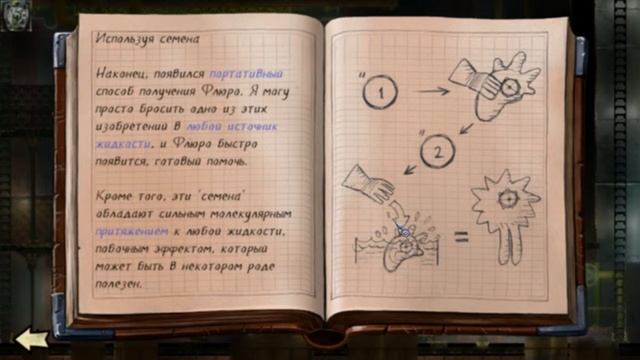 Используя семена
Наконец, появился портативный
способ получения Флюро. Я могу
просто бросить одно из этих
изобретений в любой источник
жидкости, и Флюро быстро
появится, готовый помочь.
Кроме того, эти 'семена'
обладают сильным молекулярным
притяжением к любой жидкости,
побочным эффектом, который
может быть в некотором роде
полезен.
"1
"2
=